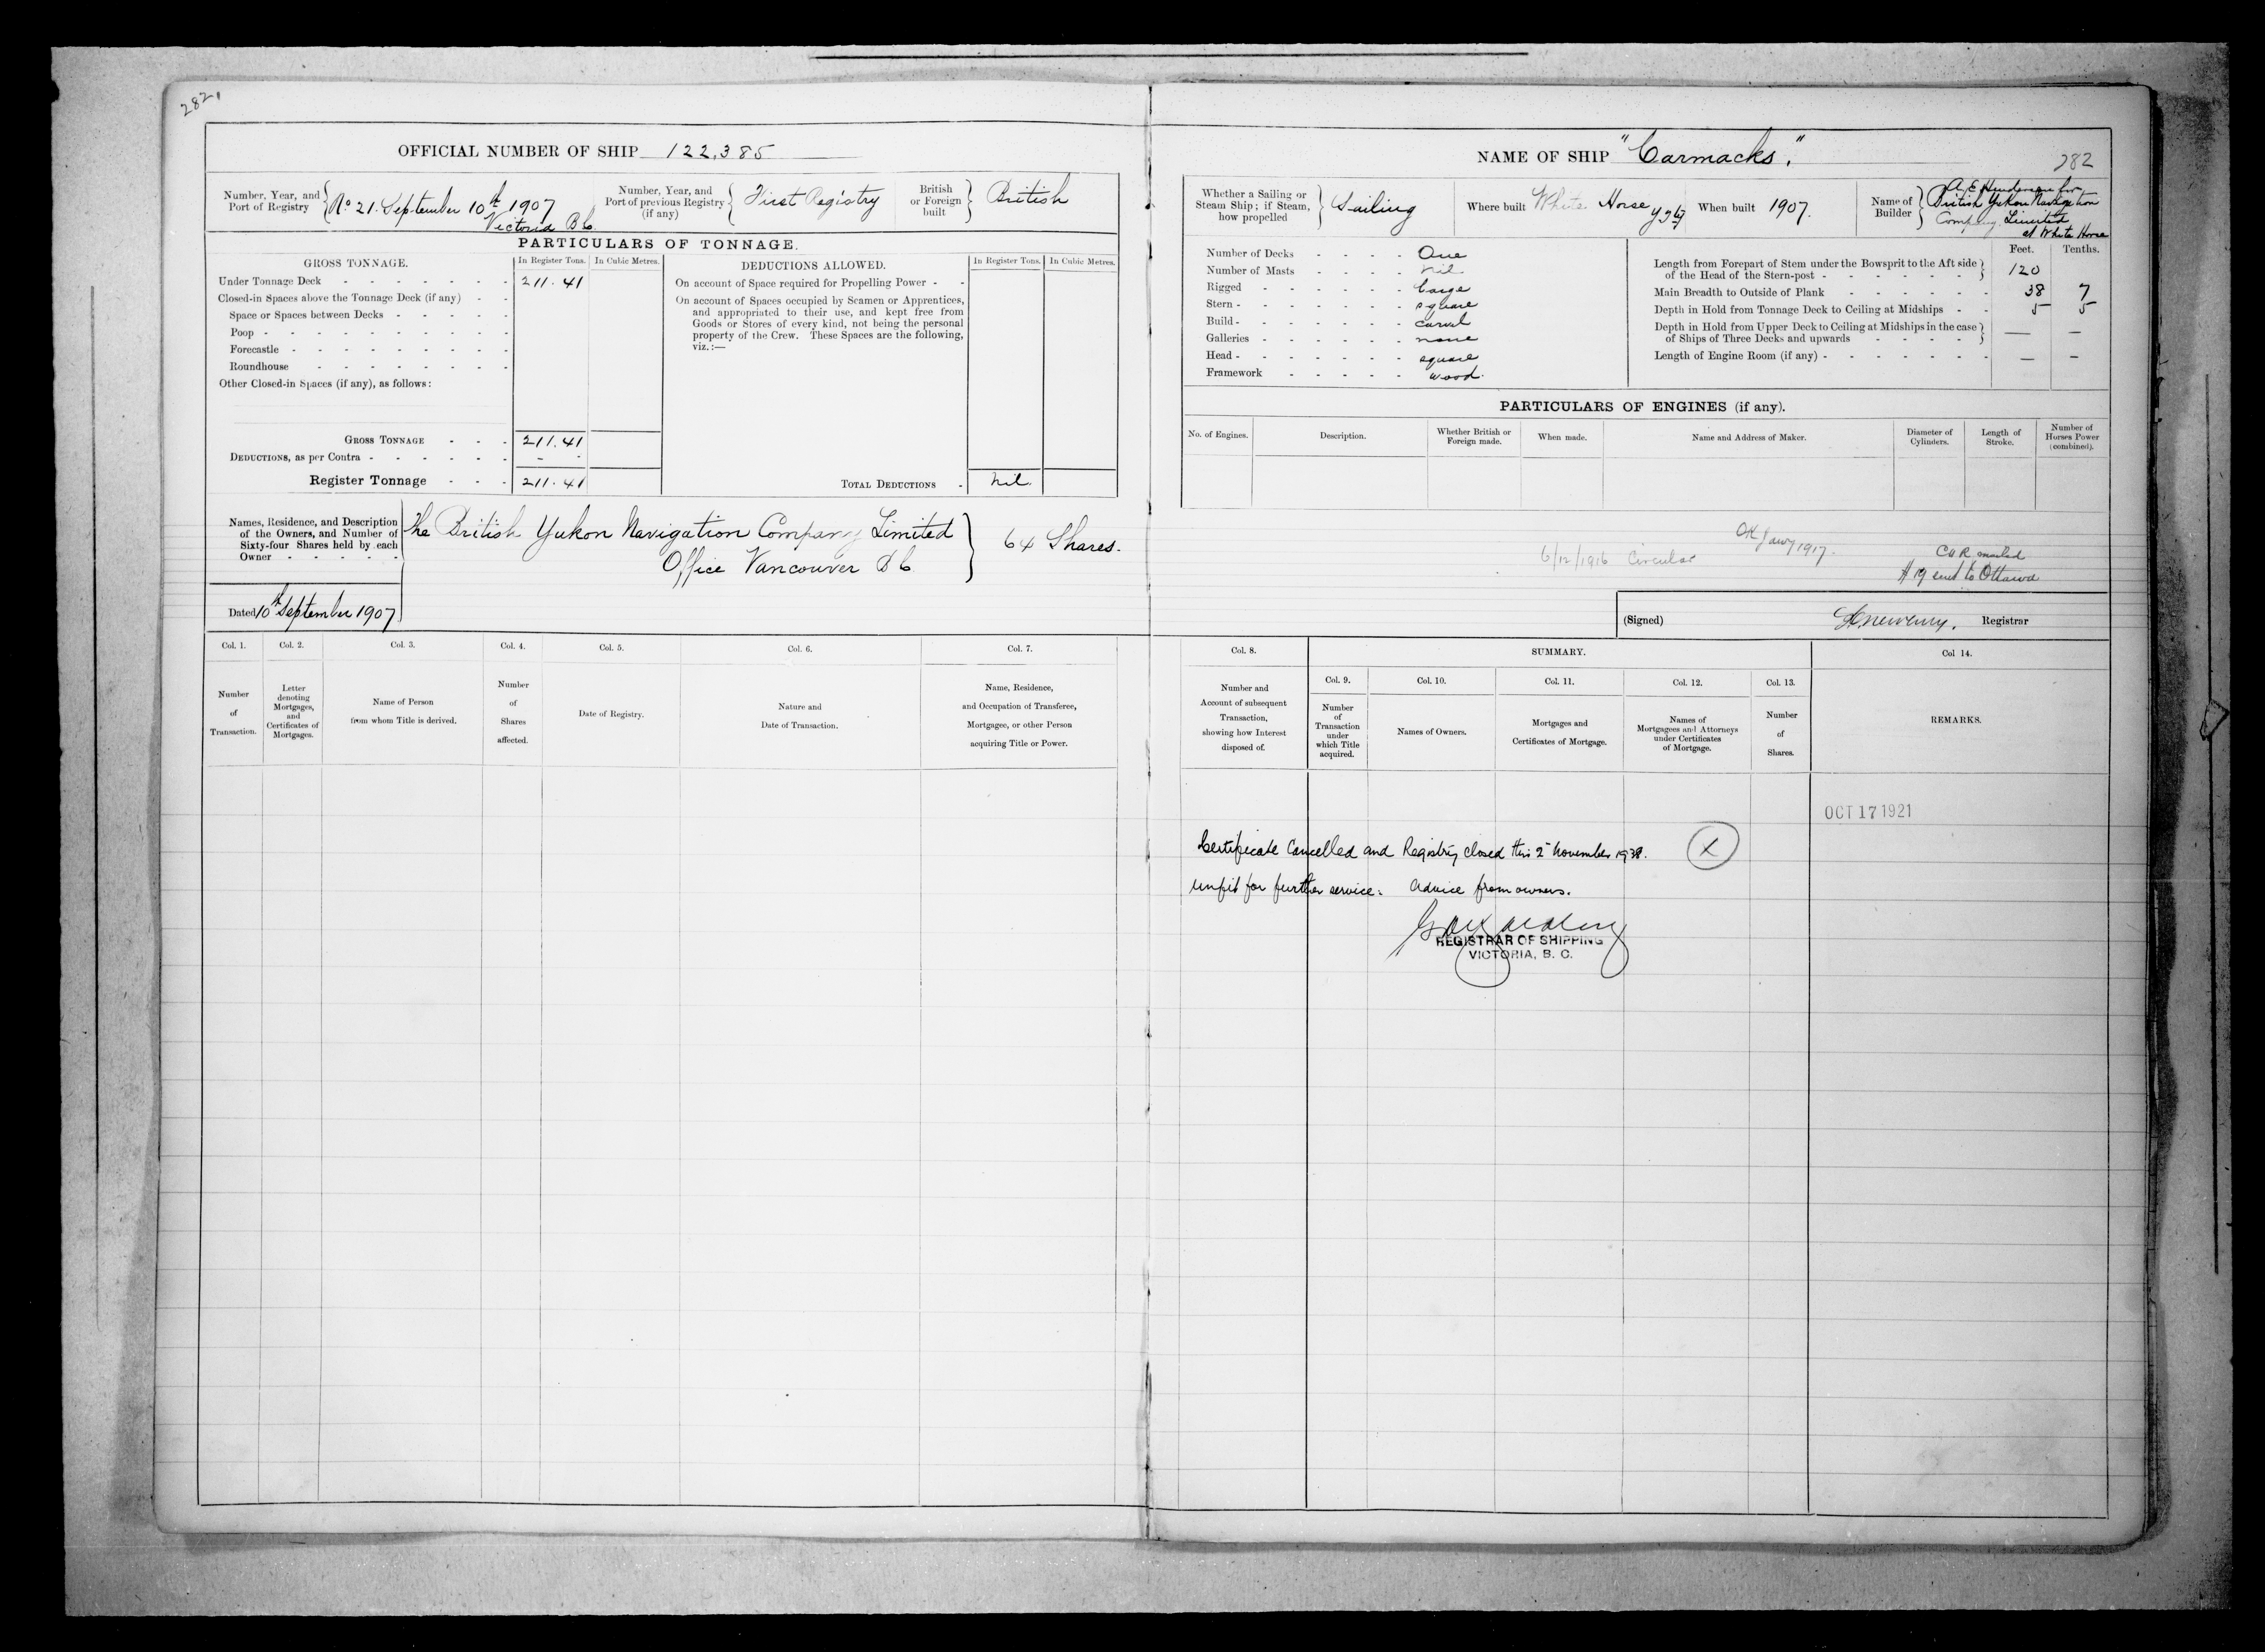 282.
OFFICIAL NUMBER OF SHIP 122,385
Number, Year, and Port of Registry
No 21. September 10th 1907
Victoria B.C.
Number, Year, and Port of previous Registry (if any)
First Registry
British or Foreign built
British
PARTICULARS OF TONNAGE.
GROSS TONNAGE.
In Register Tons.
In Cubic Metres.
Under Tonnage Deck 211.41
Closed-in Spaces above the Tonnage Deck (if any)
Space or Spaces between Decks
Poop
Forecastle
Roundhouse
Other Closed-in Spaces (if any), as follows:
GROSS TONNAGE 211.41
DEDUCTIONS, as per Contra - -
Register Tonnage 211.41
DEDUCTIONS ALLOWED.
In Register Tons.
In Cubic Metres.
On account of Space required for Propelling Power
On account of Spaces occupied by Seamen or Apprentices,
and appropriated to their use, and kept free from
Goods or Stores of every kind, not being the personal
property of the Crew. These Spaces are the following,
viz.:—
TOTAL DEDUCTIONS nil.
Names, Residence, and Description
of the Owners, and Number of
Sixty-four Shares held by each
Owner
The British Yukon Navigation Company Limited
Office Vancouver B C
64 Shares.
Dated 10th September 1907
Col. 1.
Number of Transaction.
Col. 2.
Letter denoting Mortgages, and Certificates of Mortgages.
Col. 3.
Name of Person from whom Title is derived.
Col. 4.
Number of Shares affected.
Col. 5.
Date of Registry.
Col. 6.
Nature and Date of Transaction.
Col. 7.
Name, Residence,
and Occupation of Transferee,
Mortgagee, or other Person
acquiring Title or Power.
NAME OF SHIP "Carmacks."
282
Whether a Sailing or
Steam Ship; if Steam,
how propelled
Sailing
Where built White Horse Y.T.
When built 1907.
Name of Builder
A E Henderson for
British Yukon Navigation
Company Limited
at White Horse
Number of Decks One
Number of Masts nil
Rigged barge
Stern square
Build carvel
Galleries none
Head square
Framework wood.
Feet. Tenths.
Length from Forepart of Stem under the Bowsprit to the Aft side
of the Head of the Stern-post 120
Main Breadth to Outside of Plank 38 7
Depth in Hold from Tonnage Deck to Ceiling at Midships 5 5
Depth in Hold from Upper Deck to Ceiling at Midships in the case
of Ships of Three Decks and upwards — —
Length of Engine Room (if any) — —
PARTICULARS OF ENGINES (if any).
No. of Engines.
Description.
Whether British or Foreign made.
When made.
Name and Address of Maker.
Diameter of Cylinders.
Length of Stroke.
Number of Horses Power (combined).
6/12/1916 Circular
OK Jany 1917.
mailed
sent to Ottawa
(Signed) Registrar
Col. 8.
Number and
Account of subsequent
Transaction,
showing how Interest
disposed of.
SUMMARY.
Col. 9.
Number of Transaction under which Title acquired.
Col. 10.
Names of Owners.
Col. 11.
Mortgages and Certificates of Mortgage.
Col. 12.
Names of Mortgagees and Attorneys under Certificates of Mortgage.
Col. 13.
Number of Shares.
Col 14.
REMARKS.
OCT 17 1921
Certificate Cancelled and Registry closed this 2nd November X
unfit for further service: Advice from owners.
REGISTRAR OF SHIPPING
VICTORIA, B. C.